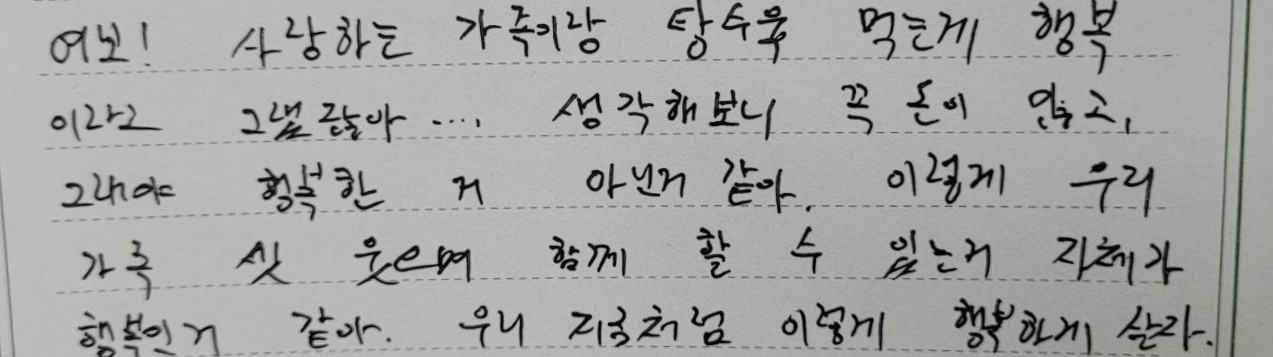 여보! 사랑하는 가족이랑 탕수육 먹는게 행복
이라고 그랬잖아.... 생각해보니 꼭 돈이 있고,
그래야 행복한 거 아닌거 같아. 이렇게 우리
가족 셋 웃으며 함께 할 수 있는거 자체가
행복인거 같아. 우리 지금처럼 이렇게 행복하게 살자.